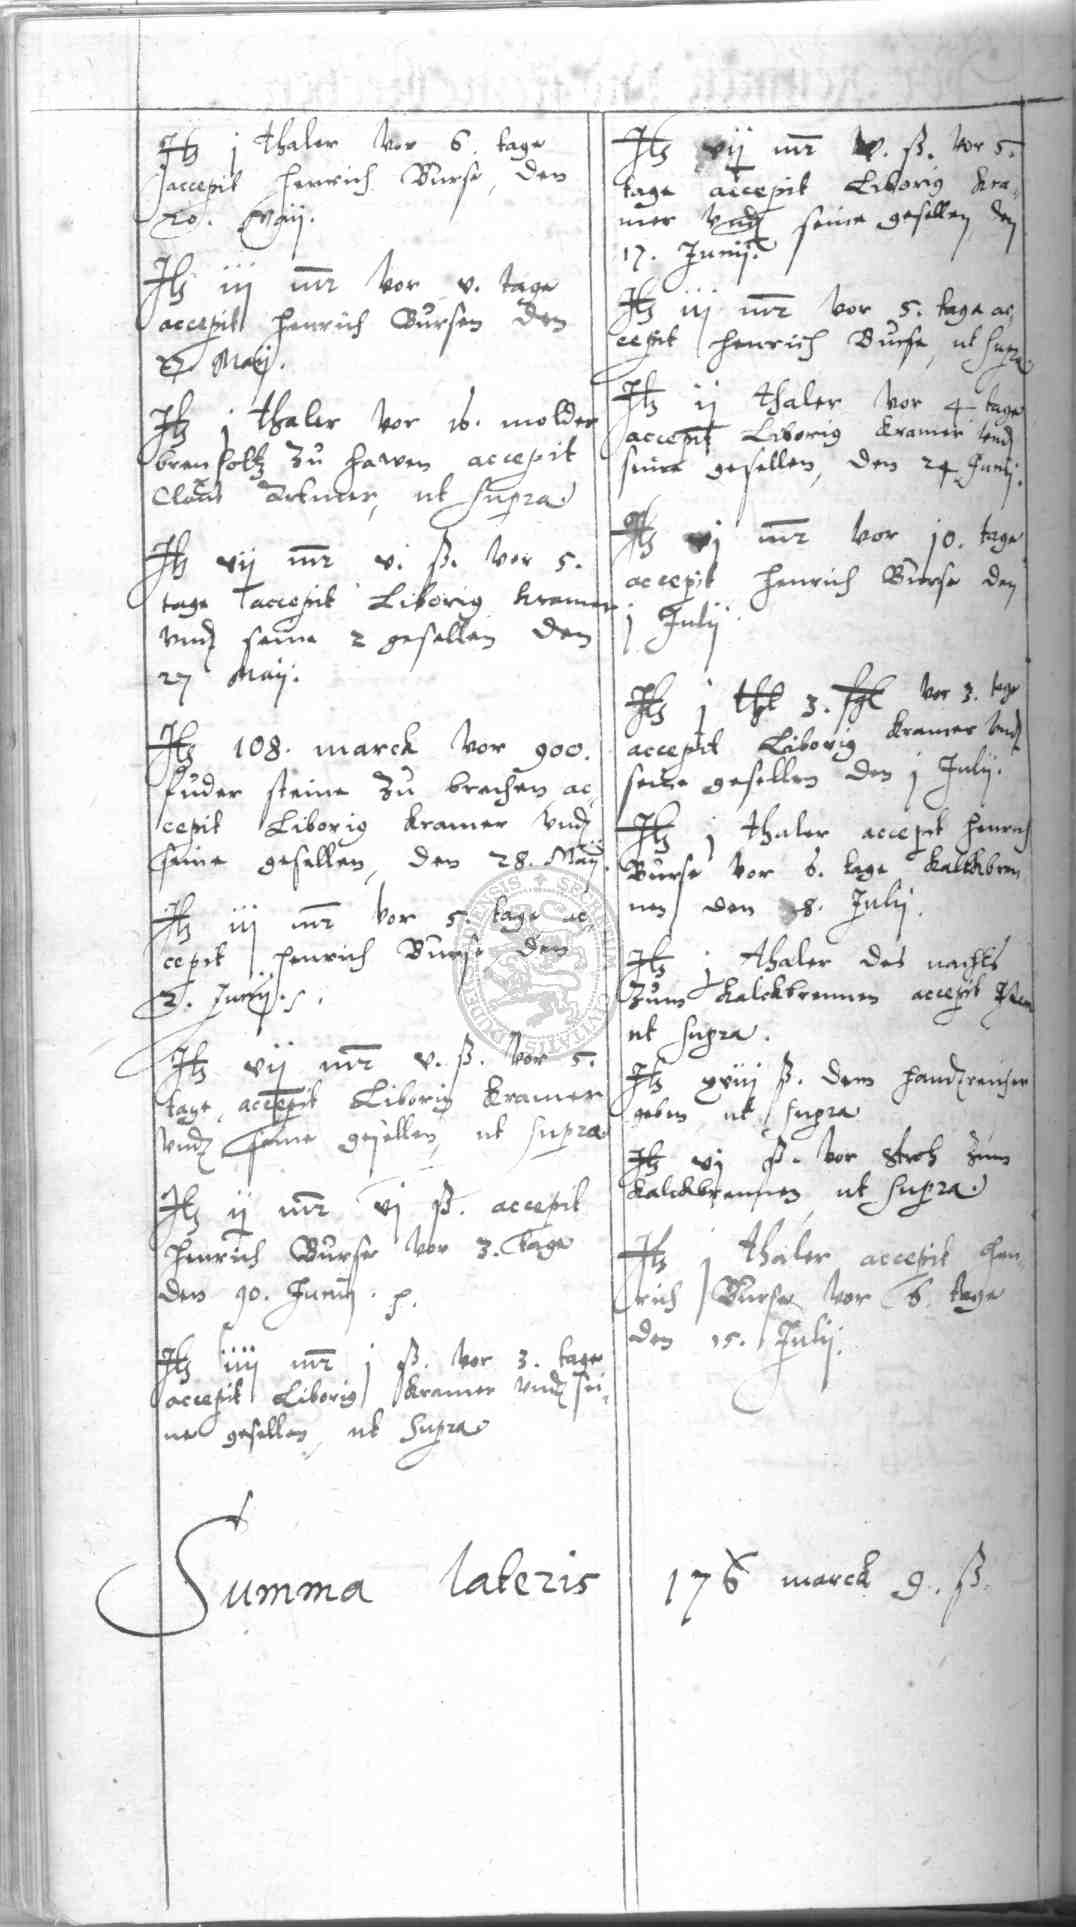 Itz j thaler vor 6. tage
accepit Henrich Burse, den
20. Maij.
Itz iij mr vor v. tage
accepit Henrich Bursen den
Maij.
Itz j thaler vor 16. molder
brenholtz zu hawen accepit
Clawes Ortmer, ut supra
Itz vij mr v. ß. vor 5.
tage accepit Liborig Kramer
vnd seine 2 gesellen den
27 Maij.
Itz 108. marck vor 900.
fuder steine zu brechen ac,
cepit Liborig Kramer vnd
seine gesellen, den 28. Maij.
Itz iij mr vor 5. tage ac,
cepit Henrich Burse den
2. Junij.
Itz vij mr v. ß. vor 5.
tage, accepit Liborig Kramer
vnd seine gesellen, ut supra
Itz ij mr vj ß. accepit
Henrich Burse vor 3. tage
den 10. Junij.
Itz iiij mr j ß. vor 3. tage
accepit Liborig Kramer vnd sei,
ne gesellen, ut supra
Itz vij mr v. ß. vor 5.
tage accepit Liborig Kra,
mer vnd seine gesellen den
17. Junij.
Itz iij mr vor 5. tage ac,
cepit Henrich Burse, ut supra
Itz ij thaler vor 4 tage
accepit Liborig Kramer vnd
seine gesellen, den 24 Junij.
Itz vj mr vor 10. tage
accepit Henrich Burse den
j Julij
Itz j thl 3. vor 3. tage
accepit Liborig Kramer vnd
seine gesellen den j Julij.
Itz j thaler accepit Henrich
Burse vor 6. tage kalckbren
nen den 8. Julij.
Itz j thaler des nachts
zum kalckbrennen accepit
ut supra.
Itz xviij ß. dem handtreicher
geben ut supra
Itz vj ß. vor stroh zum
kalckbrennen ut supra.
Itz j thaler accepit Hen,
rich Burse vor 6. tage
den 15. Julij.
Summa lateris 176 marck 9. ß.
SIGILLUM CIVITATIS